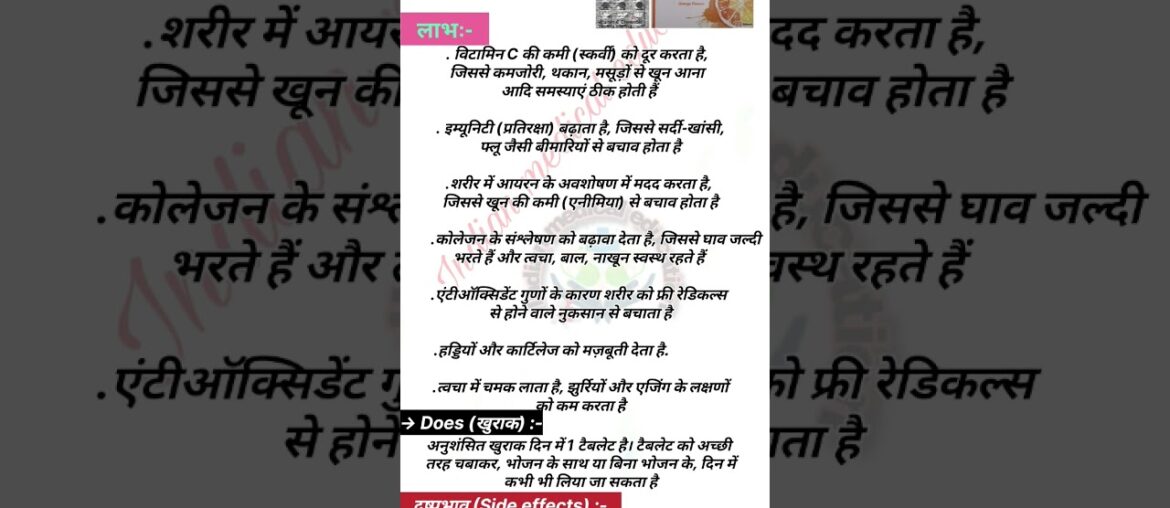 लाभः-
. विटामिन C की कमी (स्कर्वी) को दूर करता है,
जिससे कमजोरी, थकान, मसूड़ों से खून आना
आदि समस्याएं ठीक होती हैं
. इम्यूनिटी (प्रतिरक्षा) बढ़ाता है, जिससे सर्दी-खांसी,
फ्लू जैसी बीमारियों से बचाव होता है
.शरीर में आयरन के अवशोषण में मदद करता है,
जिससे खून की कमी (एनीमिया) से बचाव होता है
.कोलेजन के संश्लेषण को बढ़ावा देता है, जिससे घाव जल्दी
भरते हैं और त्वचा, बाल, नाखून स्वस्थ रहते हैं
.एंटीऑक्सिडेंट गुणों के कारण शरीर को फ्री रेडिकल्स
से होने वाले नुकसान से बचाता है
.हड्डियों और कार्टिलेज को मज़बूती देता है.
.त्वचा में चमक लाता है, झुर्रियों और एजिंग के लक्षणों
को कम करता है
→ Does (खुराक) :-
अनुशंसित खुराक दिन में 1 टैबलेट है। टैबलेट को अच्छी
तरह चबाकर, भोजन के साथ या बिना भोजन के, दिन में
कभी भी लिया जा सकता है
दुष्प्रभाव (Side effects) :-
Indian medical